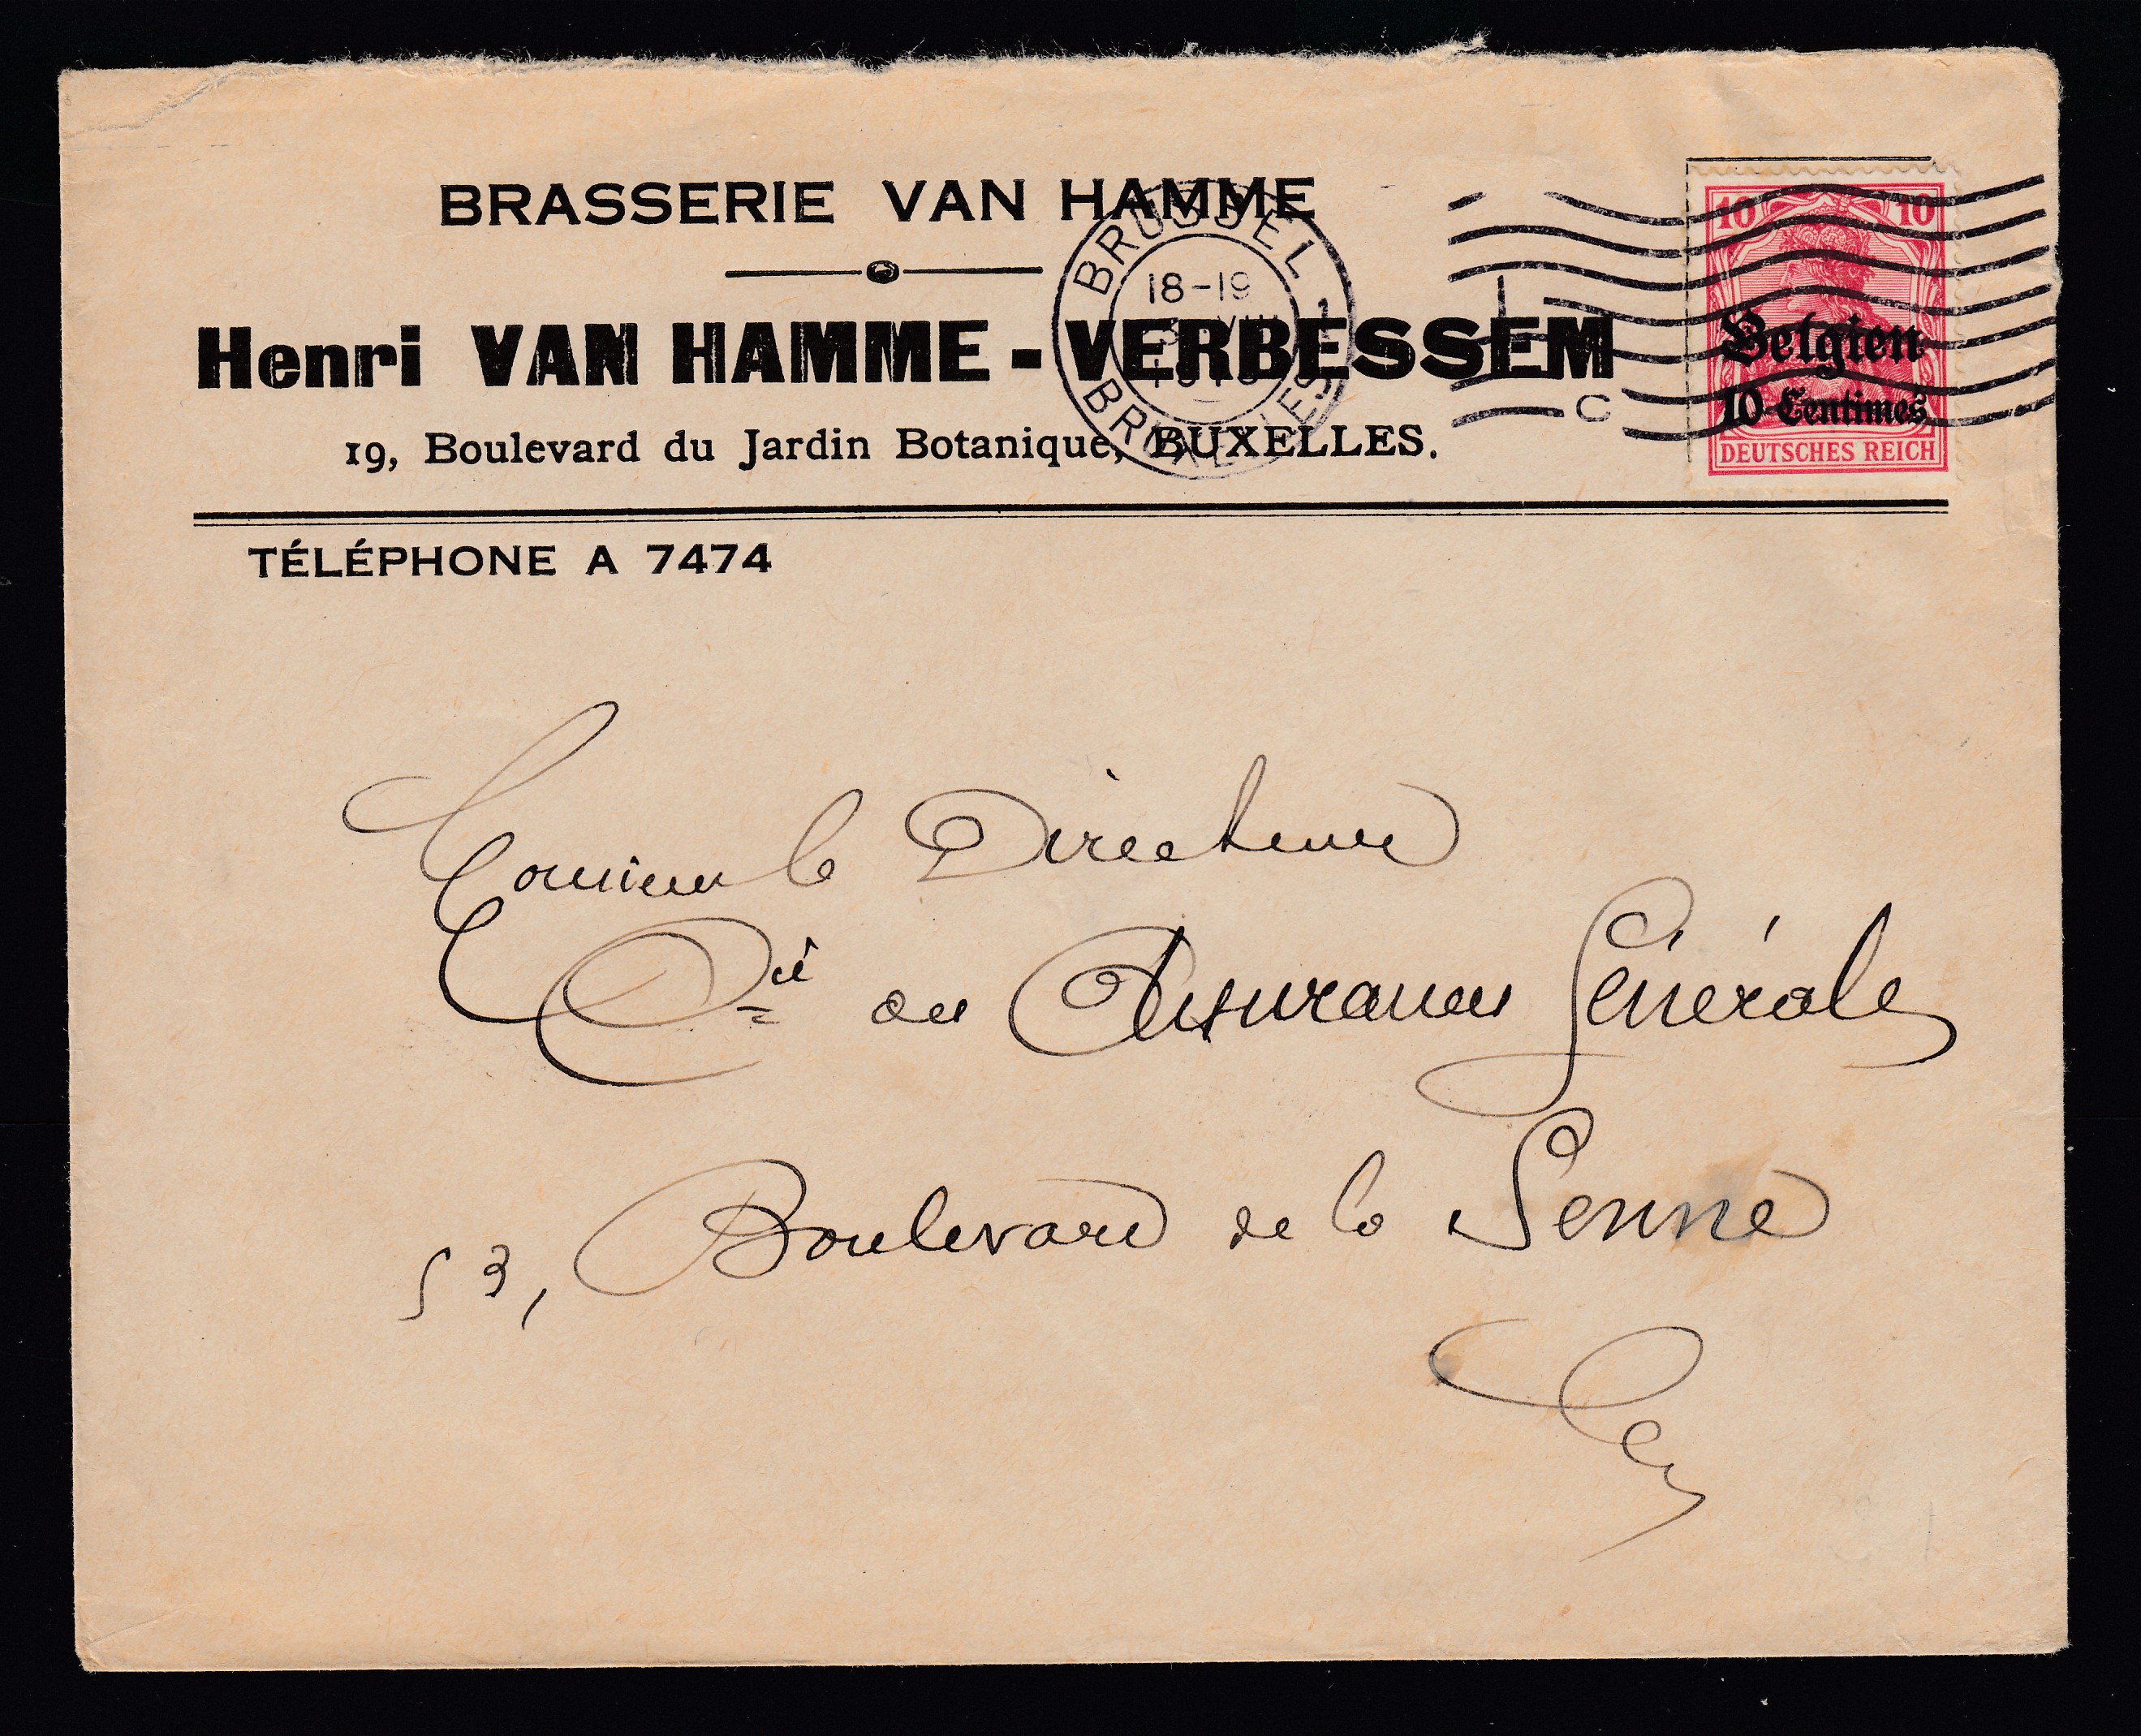 BRASSERIE VAN HAMME
Henri VAN HAMME - VERBESSEM
19, Boulevard du Jardin Botanique, BUXELLES.
TÉLÉPHONE A 7474
BRUSSEL
18-19
VIII
BRUXELLES
1
C
10 10
Belgien
10 Centimes
DEUTSCHES REICH
Monsieur le Directeur
Cie des Assurances Générales
53, Boulevard de la Senne